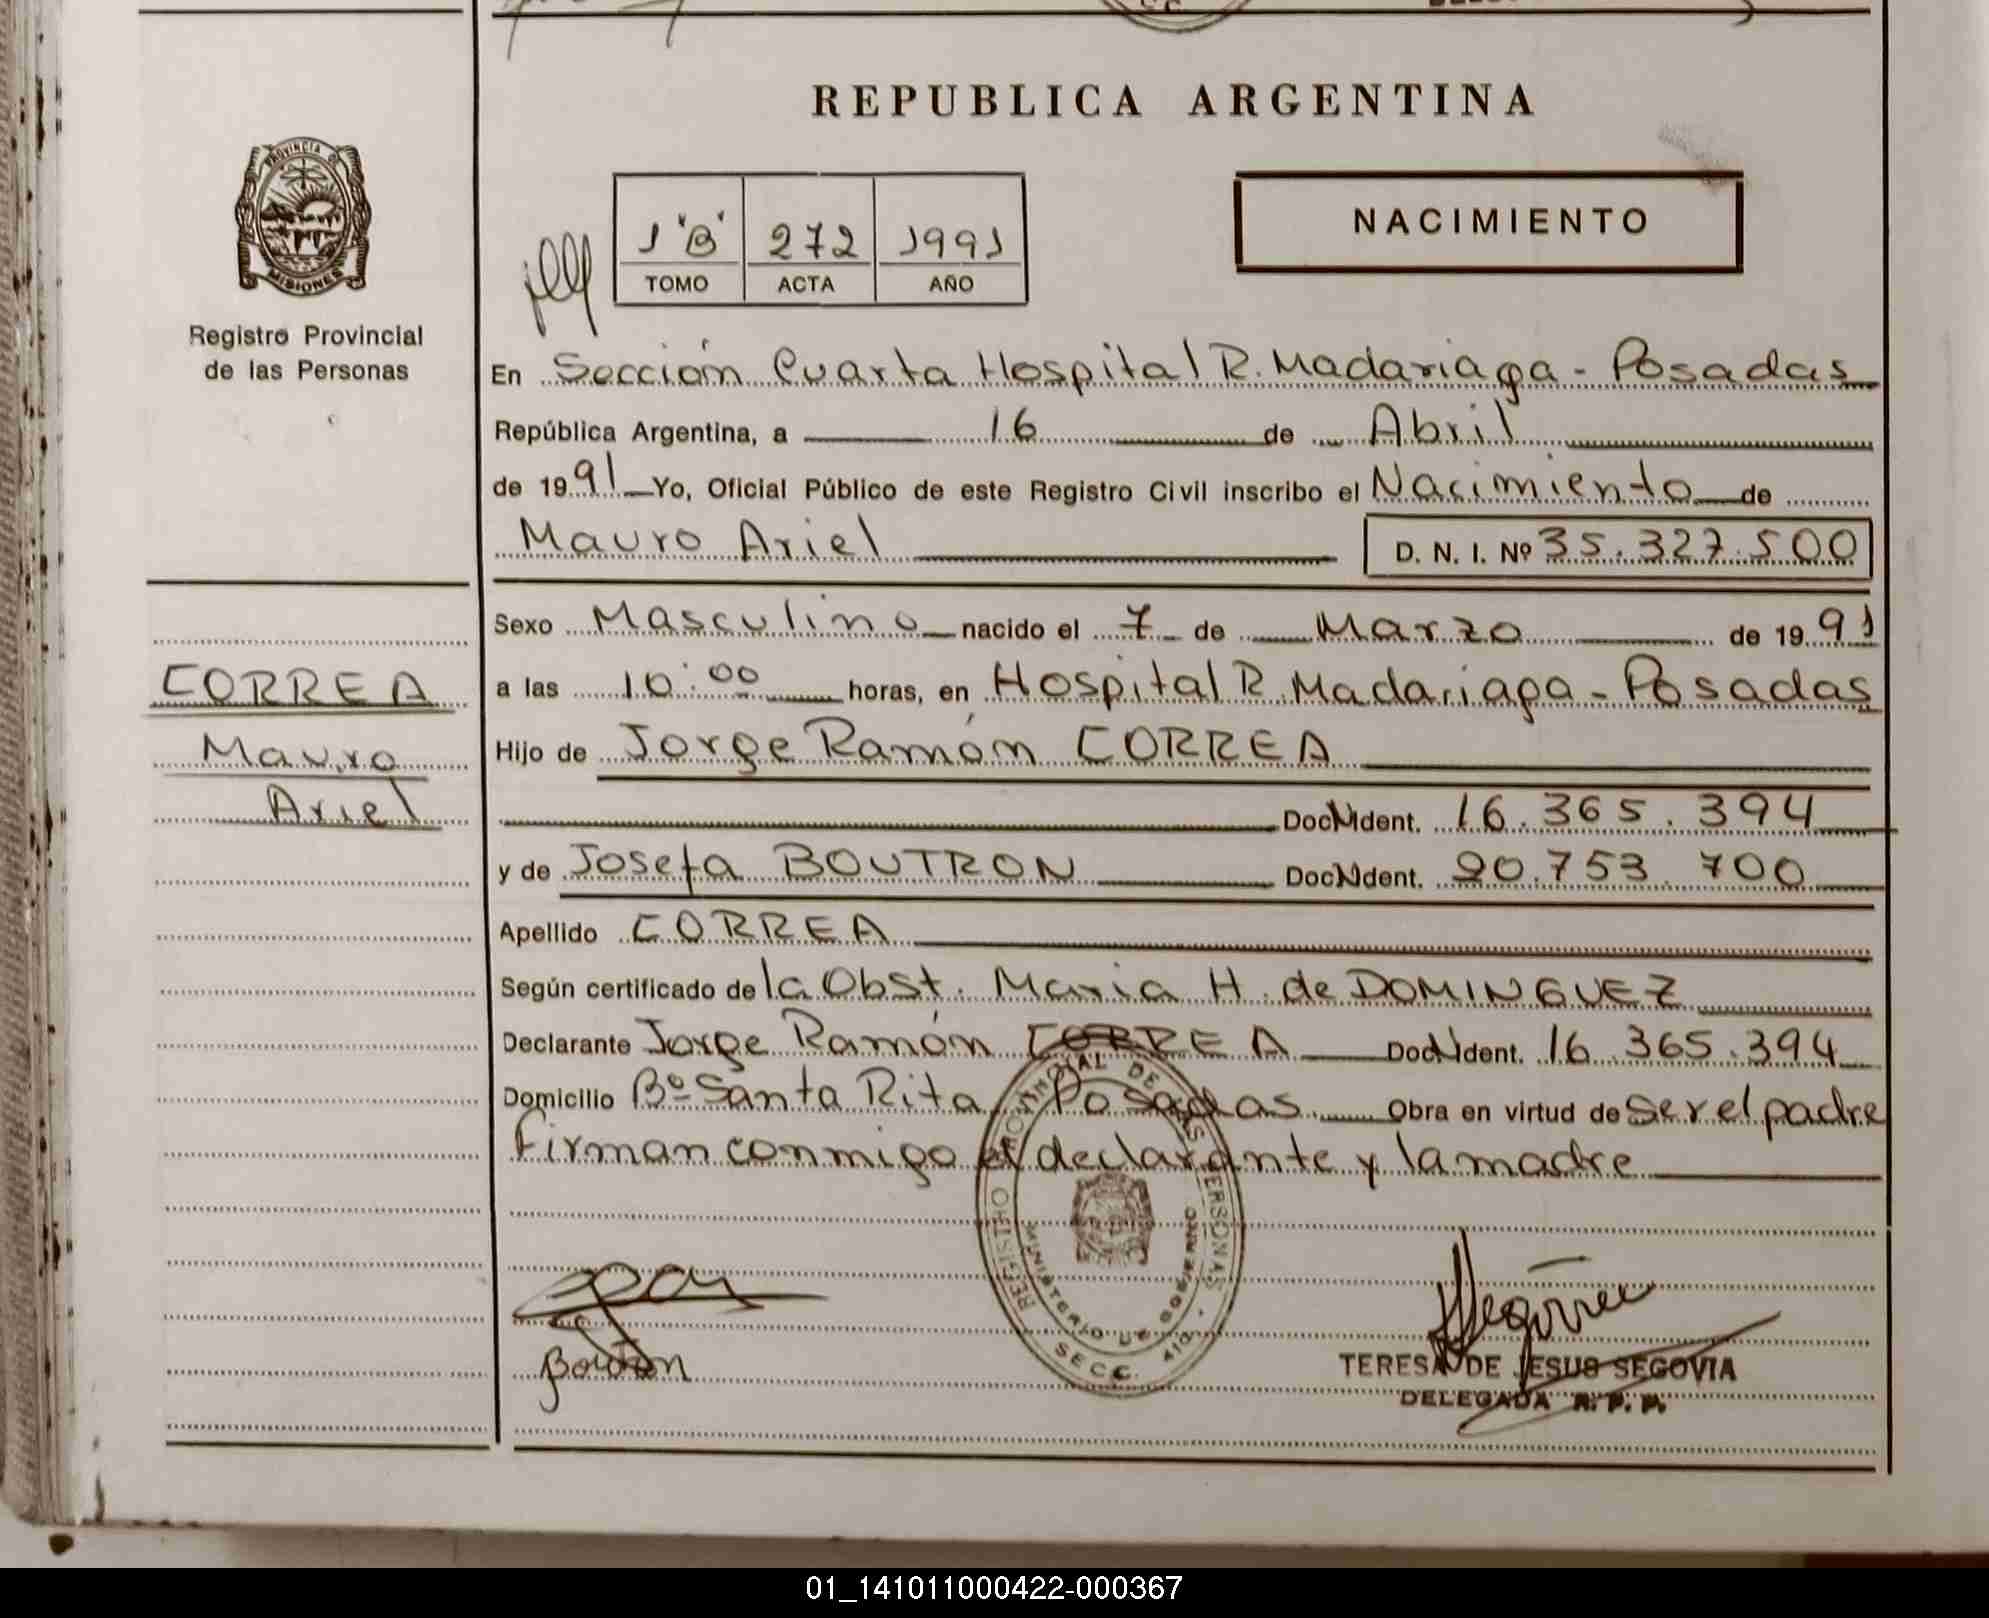 REPUBLICA ARGENTINA
PROVINCIA DE
MISIONES
Registro Provincial
de las Personas
1 "B" 272 1991
TOMO ACTA AÑO
NACIMIENTO
En Sección Cuarta Hospital R. Madariaga - Posadas
República Argentina, a 16 de Abril
de 1991 Yo, Oficial Público de este Registro Civil inscribo el Nacimiento de
Mauro Ariel D. N. I. Nº 35.327.500
Sexo Masculino nacido el 7 de Marzo de 1991
CORREA
Mauro
Ariel
a las 10:00 horas, en Hospital R. Madariaga - Posadas
Hijo de Jorge Ramón CORREA
Doc N Ident. 16.365.394
y de Josefa BOUTRON Doc N Ident. 20.753.700
Apellido CORREA
Según certificado de la Obst. Maria H. de DOMINGUEZ
Declarante Jorge Ramón CORREA Doc N Ident. 16.365.394
Domicilio Bº Santa Rita Posadas Obra en virtud de Ser el padre
Firman conmigo el declarante y la madre
REGISTRO PROVINCIAL DE LAS PERSONAS
MINISTERIO DE GOBIERNO
SECC. 4ta.
TERESA DE JESUS SEGOVIA
DELEGADA R. P. P.
01_141011000422-000367